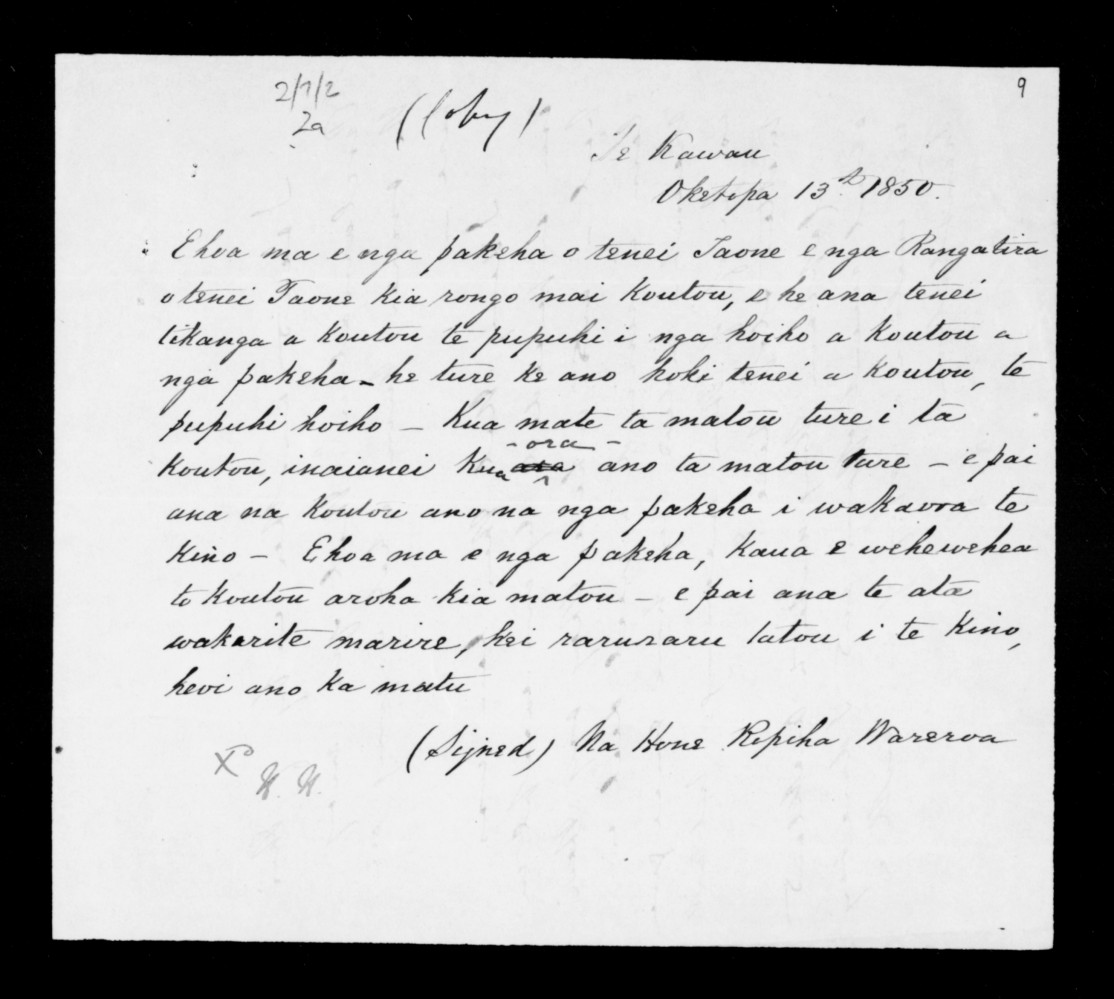 2/1/2
2a
(Copy)
9
Te Kawau
Oketopa 13th 1850.
Ehoa ma e nga pakeha o tenei Taone e nga Rangatira
o tenei Taone kia rongo mai koutou, e he ana tenei
tikanga a koutou te pupuhi i nga hoiho a koutou a
nga pakeha - he ture ke ano hoki tenei a koutou, te
pupuhi hoiho - Kua mate ta matou ture i ta
koutou, inaianei kua ora ano ta matou ture - e pai
ana na koutou ano na nga pakeha i wakaora te
kino - Ehoa ma e nga pakeha, kaua e wehewehea
to koutou aroha kia matou - e pai ana te ata
wakarite marire, kei raruraru tatou i te kino,
heoi ano ka mutu
(Signed) Na Hone Ropiha Wareroa